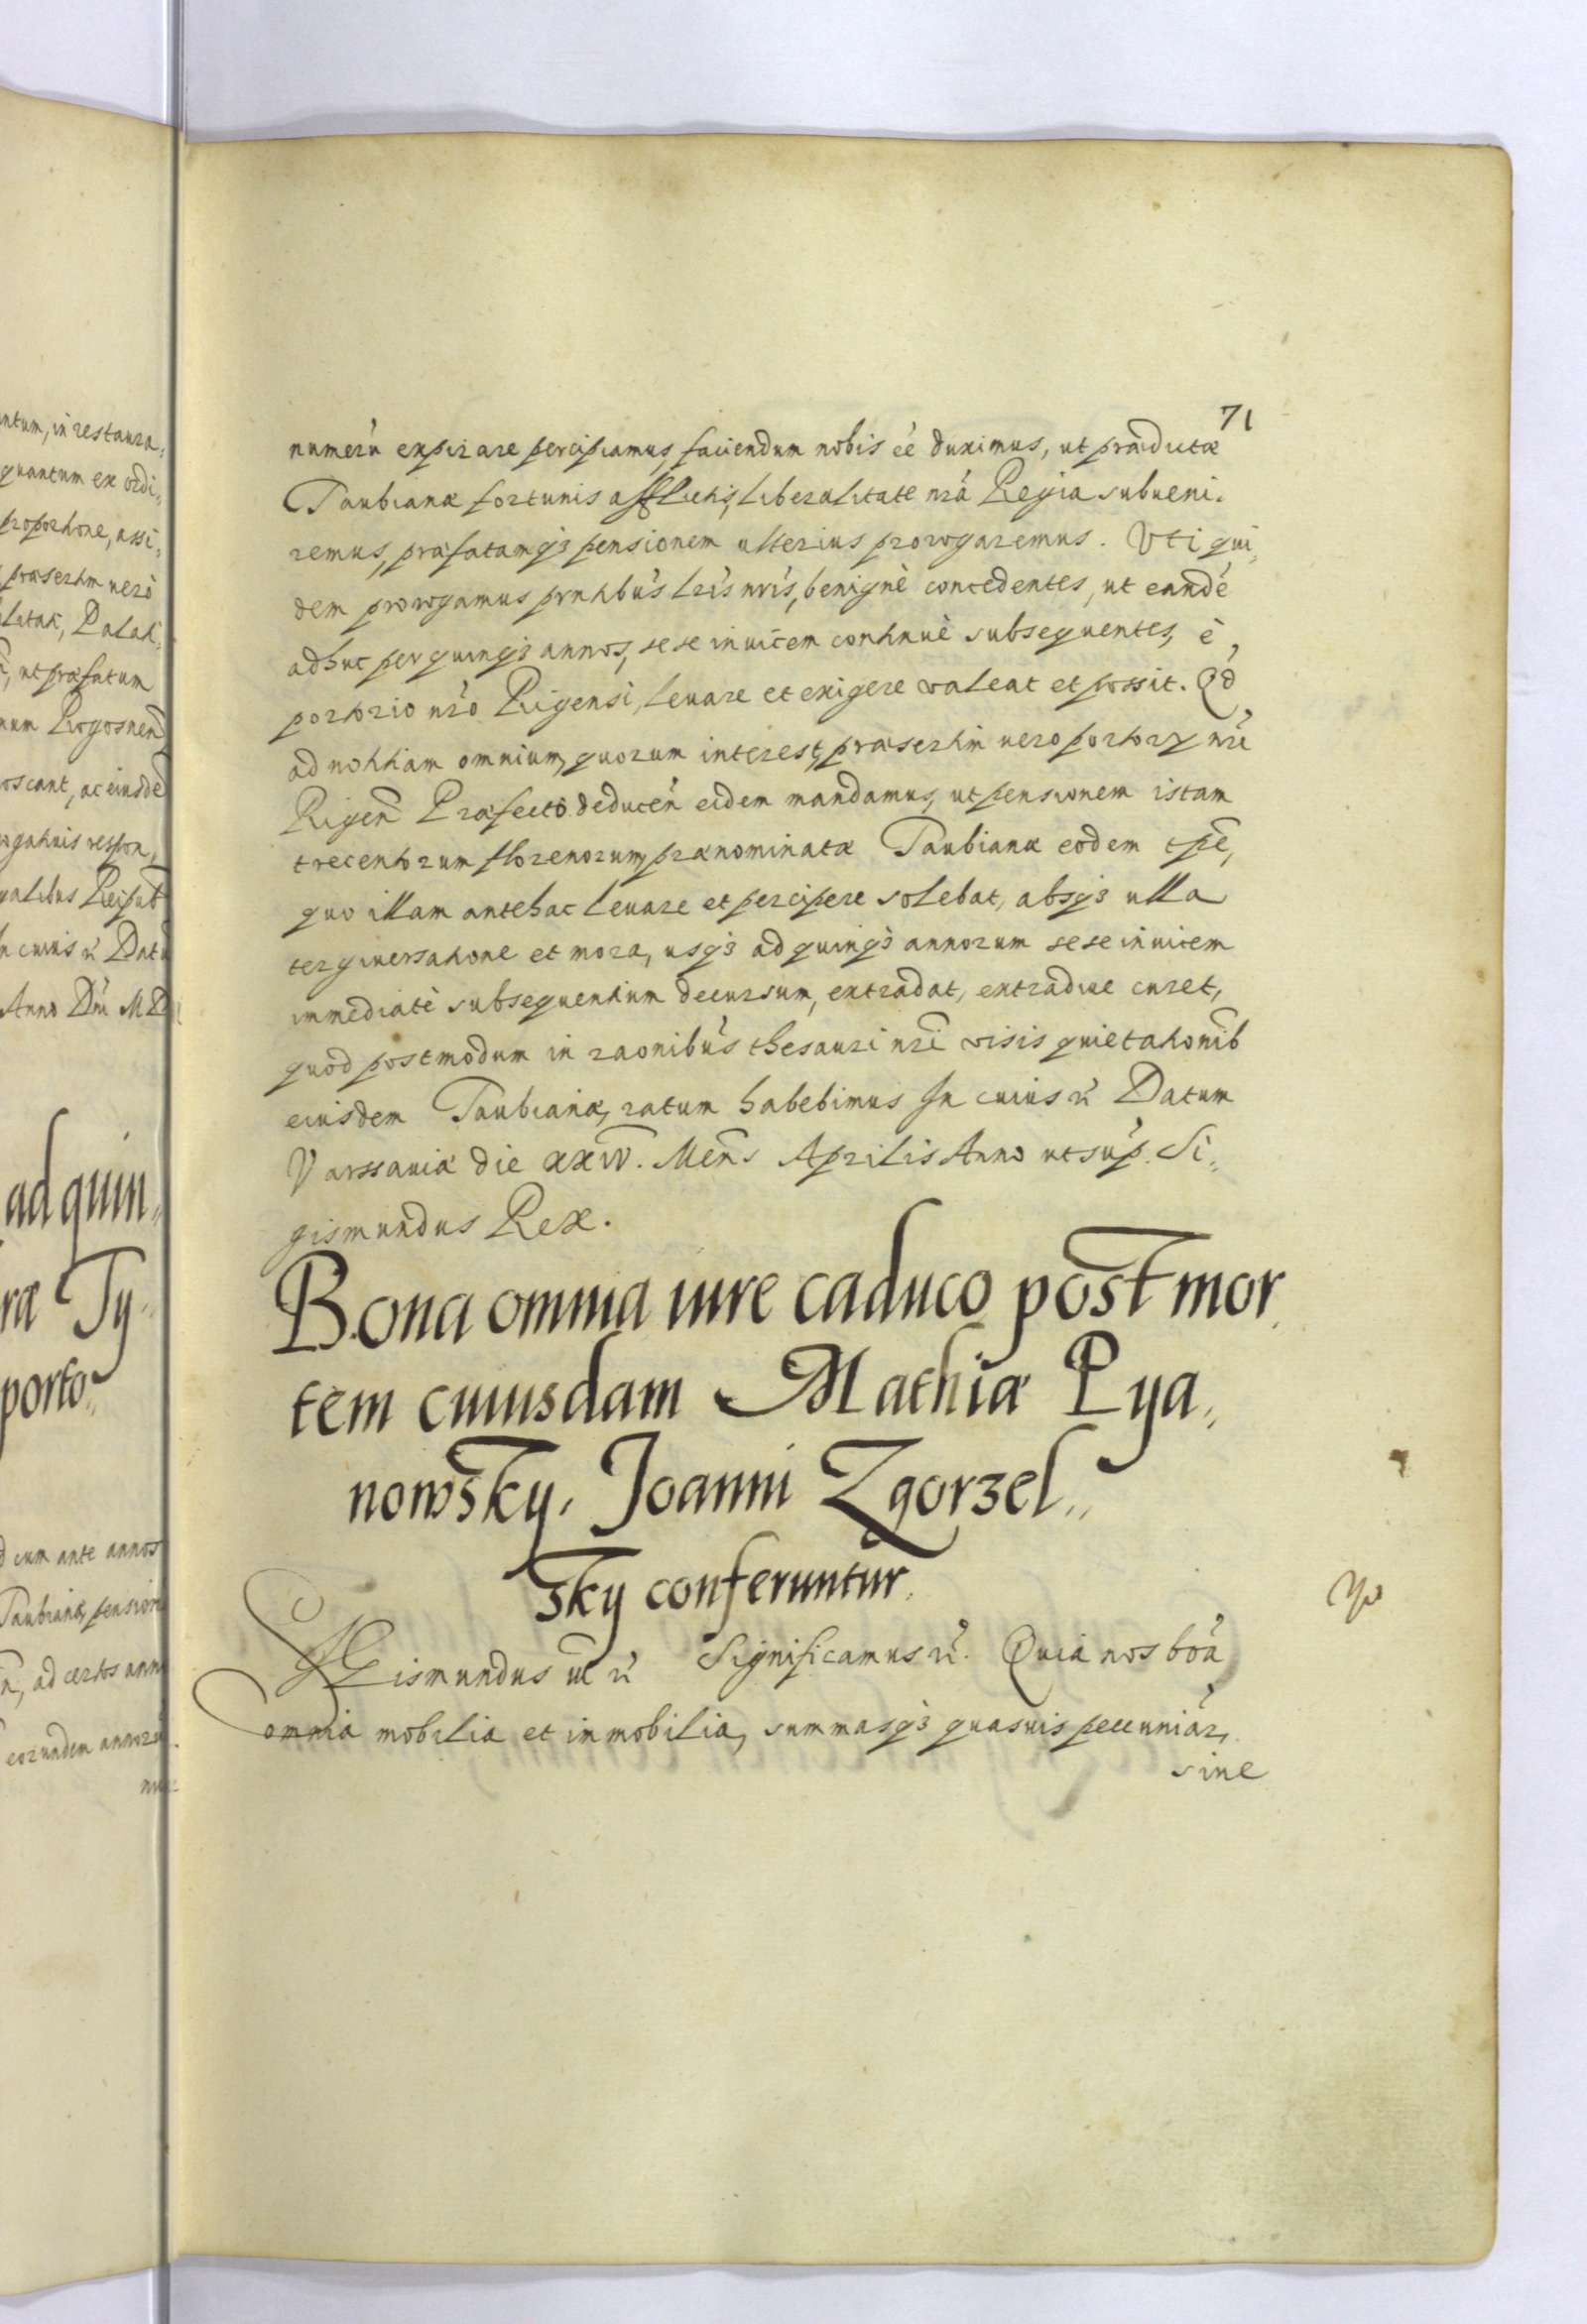 71
numerū expirare percipiamus, faciendum nobis ēē duximus, ut prædictæ
Taubianæ fortunis afflictis, liberalitate nrā Regia subueni,
remus, præfatamq3 pensionem ulterius prorogaremus. Vti qui,
dem prorogamus pntibus lris nris, benignè concedentes, ut eandē
adhuc per quinq3 annos, sese inuicem continuè subsequentes, è,
portorio nro Rigensi, leuare et exigere valeat et possit. Qd
ad notitiam omnium, quorum interest, præsertim uero portorÿ nri
Rigen Præfecto deducen eidem mandamus, ut pensionem istam
trecentorum florenorum, prænominatæ Taubianæ eodem tpē,
quo illam antehac leuare et percipere solebat, absq3 ulla
tergiuersatione et mora, usq3 ad quinq3 annorum sese inuicem
immediatè subsequentium decursum, extradat, extradiue curet,
quod postmodum in raonibus thesauri nri visis quietationib
eiusdem Taubianæ, ratum habebimus In cuius rī Datum
Varssauiæ die xxiv. Mens Aprilis Anno ut sup. Si,,
gismundus Rex.
Bona omnia iure caduco post mor,
tem cuiusdam Mathiæ Pya,,
nowsky, Joanni Zgorzel,,
sky conferuntur.
SGismundus III rī Significamus rī. Quia nos bōā
omnia mobilia et inmobilia, summasq3 quasuis pecuniar,
sine
ntum, in restaura,
quantum ex ordi,,
proportione, assi,
præsertim uerò
litat, Palati,
, ut præfatum
num Rogosnen
oscant, ac eiusdē
ogatiuis respon,
galibus Reipub
n cuius rī Datū
Anno Dni MD
ad quin,,
ræ Ty,,
porto,,
d cum ante annos
Taubianæ, pension
n, ad certos ann
eorundem annorū
nu-